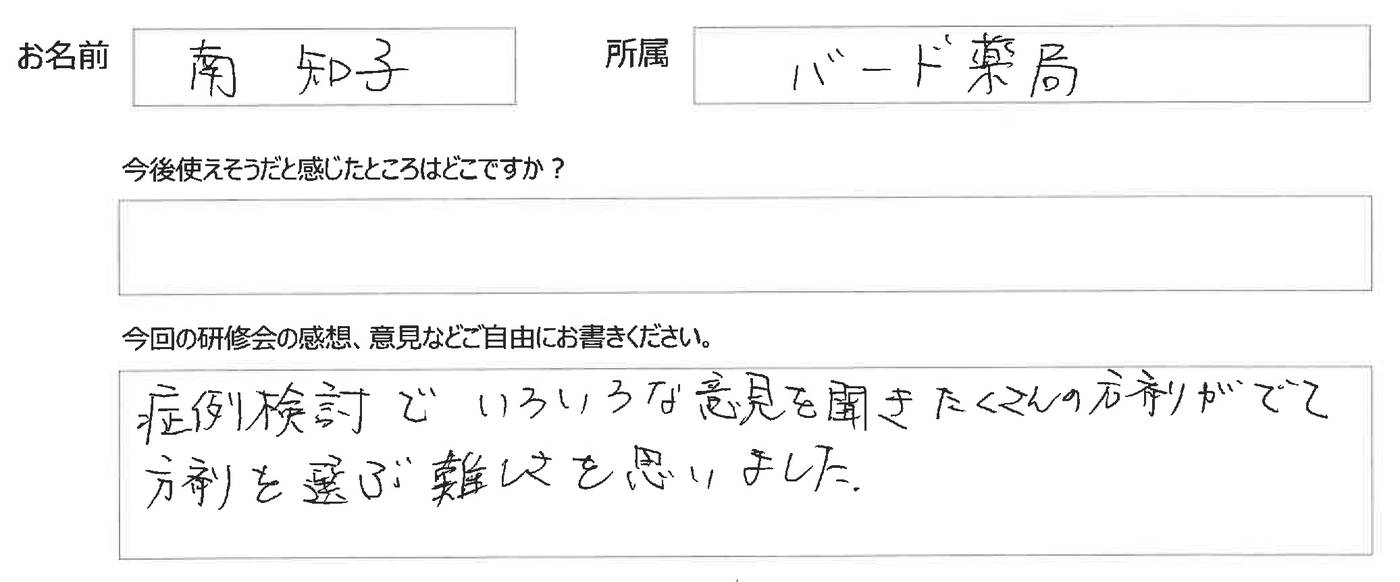 お名前 南 知子 所属 バード薬局
今後使えそうだと感じたところはどこですか？
今回の研修会の感想、意見などご自由にお書きください。
症例検討でいろいろな意見を聞きたくさんの方剤がでて
方剤を選ぶ難しさを思いました.